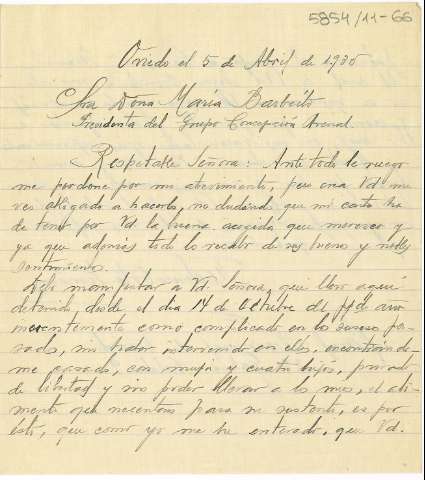 5854/11-66
Oviedo el 5 de Abril de 1935
Sra Dona María Barbeito
Presidenta del Grupo Concepción Arenal.
Respetable Señora: Ante todo le ruego
me perdone por mi atrevimiento, pero crea Vd me
veo obligado a hacerlo, no dudando que mi carta ha
de tener por Vd la buena acogida que merezca y
ya que además todo lo recabo de sus buenos y nobles
sentimientos.
Debo manifestar a Vd. Señora, que llevo aquí
detenido, desde el día 14 de Octubre del ppdo año
como complicado en los sucesos pa-
sados, sin haber intervenido en ellos, encontrándo-
me casado, con mujer y cuatro hijos, privado
de libertad y sin poder llevar a los mios, el ali-
mento que necesitan para su sustento, es por
ésto, que como yo me he enterado, que Vd.